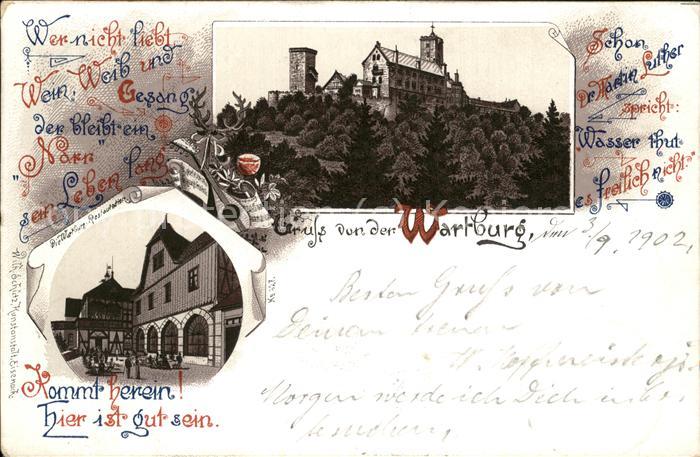 Wer nicht liebt
Wein, Weib und
Gesang,
der bleibt ein
"Narr"
sein Leben lang
Schon
Dr Martin Luther
spricht:
Wasser thut
es freilich nicht"
Gruss von der Wartburg,
den 3/9. 1902.
Die Wartburg-Restauration
No 267.
Besten Gruss von
Deinem
Morgen werde ich Dich
Kommt herein!
Hier ist gut sein.